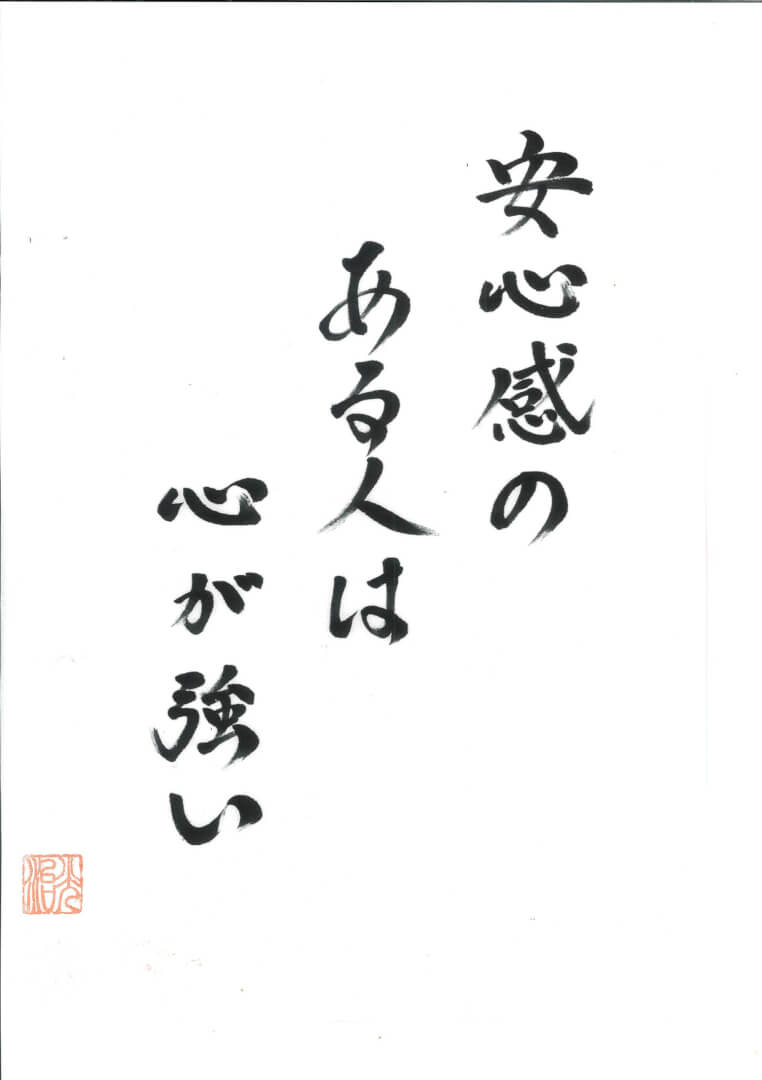 安心感の
ある人は
心が強い